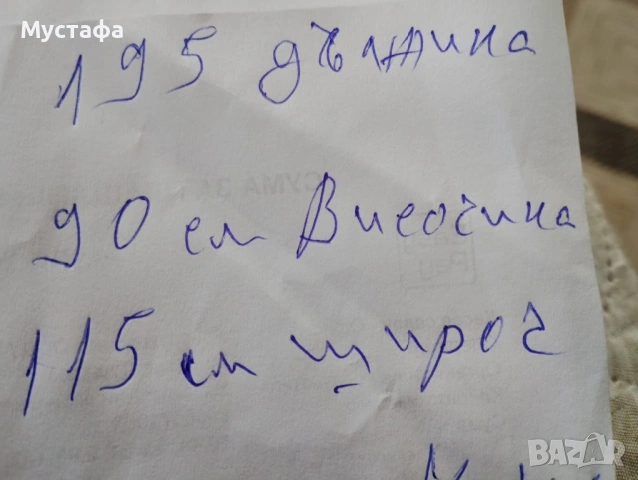 Мустафа
195 дължина
СУМА ЗА
90 см Височина
115 см щироч
BAZAR